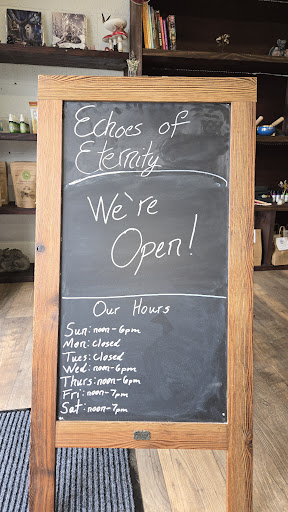 Echoes of
Eternity
We`re
Open!
Our Hours
Sun: noon-6pm
Mon: closed
Tues: closed
Wed: noon-6pm
Thurs: noon-6pm
Fri: noon-7pm
Sat: noon-7pm